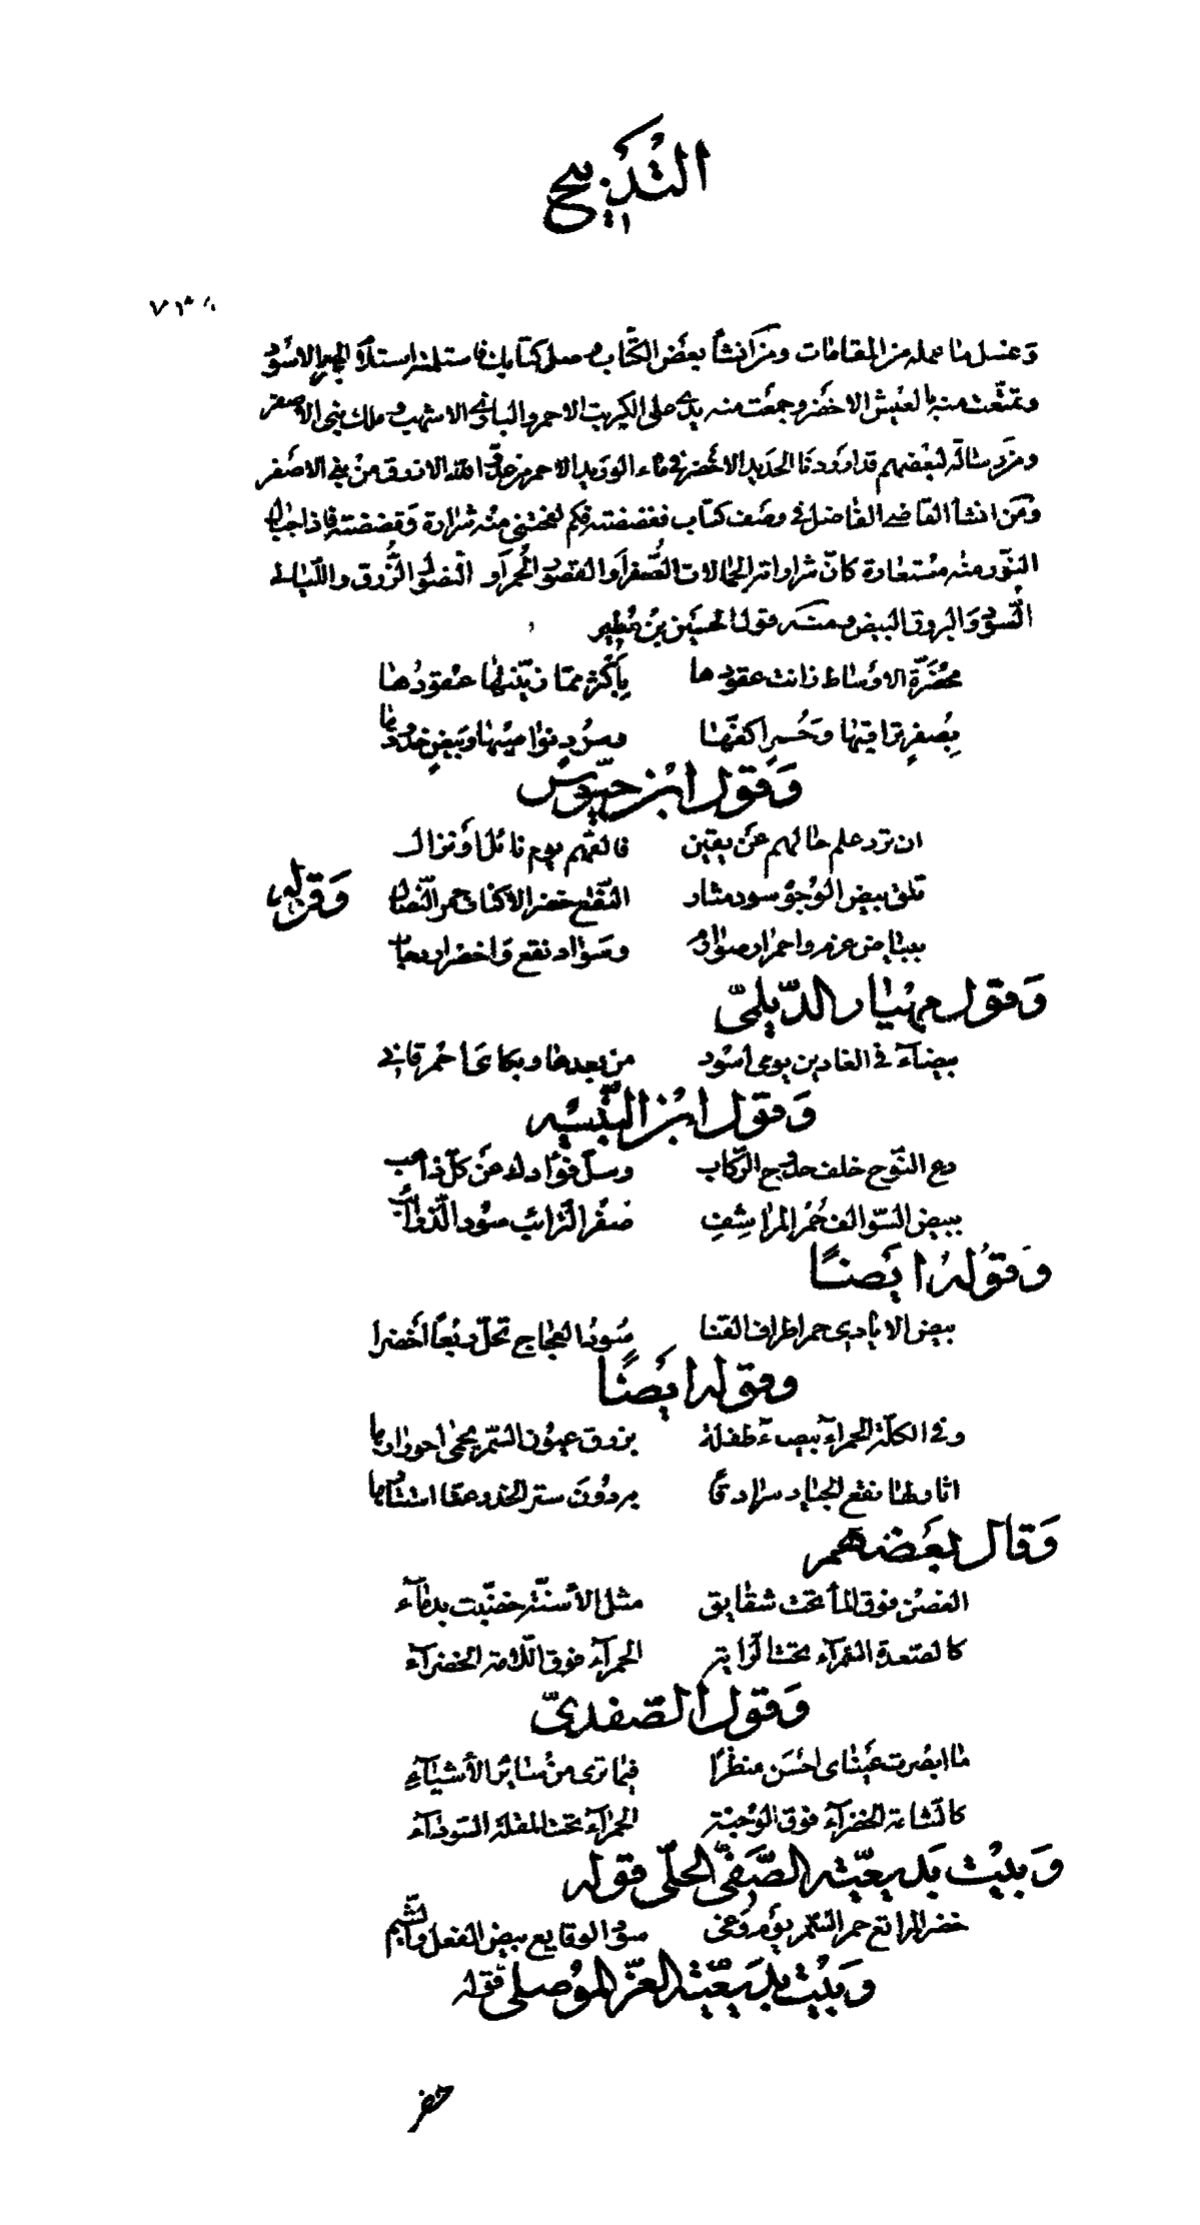 التدبيج
وغسل ما عمله من المقامات ومن انشآ بعض الكتّاب وصل كتابك فاستلمته استلام الحجر الاسود
وتمتّعت منه بالعيش الاخضر وجمعت منه يدي على الكبريت الاحمر والبازي الاشهب وملك بني الاصفر
ومن رسالة لبعضهم قد اوردنا الحديد الاخضر في ماء الوريد الاحمر من عدوّ الله الازرق من بني الاصفر
ومن انشا القاضي الفاضل في وصف كتاب ففضضته فكم لفحتني منه شرارة وقضضته فاذا جبال
النور منه مستعارة كانّ شراراته الجمالات الصفر او القصور الحمر او النصول الزُّرق والليالي
السود والبروق البيض ومنه قول الحسين بن مُطَير
مخصّرة الاوساط زانت عقودها بأكثر ممّا زيّنتها عقودُها
بِصُفرٍ تراقيها وحُمرٍ اكفّها وسُودٍ نواصيها وبيضٍ خدودها
وقول ابن حيّوس
ان ترد علم حالهم عن يقين فالقهم يوم نائل أو نزال
تلق بيض الوجوه سود مثار النّقع خضر الاكناف حمر النّصال وقوله
ببياض عزم واحمرار صوارم وسواد نقع واخضرار رحاب
وقول مهيار الديلميّ
بيضآء في الغادين يومي اسود من بعدها وبكاي احمر قاني
وقول ابن النّبيه
دع النّوح خلف حدوج الرّكاب وسلّ فؤادك عن كلّ ذاهب
ببيض السّوالف حُمْر المراشِفِ صُفْر الترائب سُود الذّوائب
وقوله ايضًا
بيض الايادي حمر اطراف القنا سُود العجاج تحلّ ربعًا أخضرا
وقوله ايضًا
وفي الكلّة الحمرآء بيضآء طفلة بزرق عيون السّمر يحمى احورارها
اثار لها نقع الجياد سرادقًا يردّون ستر الخدر عمّا استثارها
وقال بعضهم
الغصن فوق المآ تحت شقايق مثل الأسنّة خضّبت بدمآء
كالصعدة السّمرآء تحت الراية الحمرآء فوق اللّامة الخضرآء
وقول الصّفديّ
ما ابصرت عيناي احسن منظرًا فيما ترى من سائر الأشيآءِ
كالشّامة الخضرآء فوق الوجنة الحمرآء تحت المقلة السّودآء
وبيت بديعيّته الصّفيّ الحلّي قوله
خضر المرابع حمر السّمر يوم وغى سود الوقايع بيض الفعل والشّيم
وبيت بديعيّته العزّ الموصلي قوله
خضر